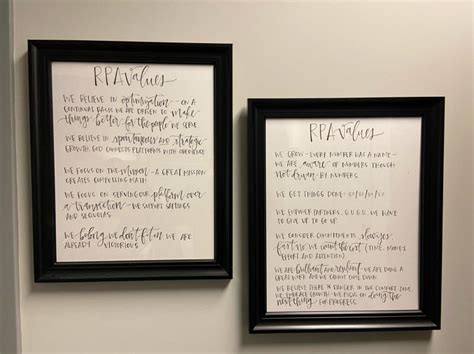 RPA values
WE BELIEVE IN optimization - ON A
CONTINUAL BASIS WE ARE DRIVEN TO make
things better for the people WE SERVE
WE BELIEVE IN spontaneous AND strategic
GROWTH. GOD CONNECTS PLATFORMS WITH OBEDIENCE
WE FOCUS ON THE mission - A GREAT MISSION
CREATES COMPELLING MATH.
WE FOCUS ON SERVING OUR platform over
a transaction - WE SUPPORT SAPLINGS
AND SEQUOIAS.
WE belong, we don't fit in. WE ARE
ALREADY VICTORIOUS.
RPA values
WE GROW - EVERY NUMBER HAS A NAME -
WE ARE aware OF NUMBERS THOUGH
not driven BY NUMBERS.
WE GET THINGS DONE -
WE EMPOWER PARTNERS. G.U.2.G.U. WE HAVE
TO GIVE UP TO GO UP.
WE CONSIDER COMMITMENTS slowly,
fast no. WE count the cost (TIME, MONEY,
EFFORT AND ATTENTION)
WE ARE brilliant and resilient. WE ARE DOING A
GREAT WORK AND WE CANNOT COME DOWN.
WE BELIEVE THERE IS DANGER IN THE COMFORT ZONE.
WE EMBRACE GROWTH - WE FOCUS ON doing the
next thing FOR PROGRESS.